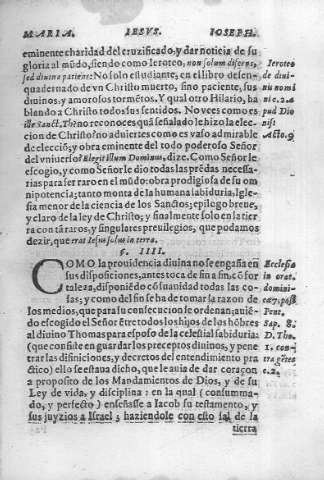 MARIA. IESVS. IOSEPH.
eminente charidad del crucificado, y dar noticia de su
gloria al mũdo, siendo como Ieroteo, non solum discens,
sed divina patiens: No solo estudiante, en el libro desen-
quadernado de vn Christo muerto, sino paciente, sus
divinos, y amorosos tormẽtos. Y qual otro Hilario, ha
blando a Christo todos sus sentidos. No veces como es
ille Sanct. Tho no reconoces quã señalado le hizo la elec-
cion de Christo? no aduiertes como es vaso admirable
de elecciõ, y obra eminente del todo poderoso Señor
del vniuerso? Elegit illum Dominus, dize. Como Señor le
escogio, y como Señor le dio todas las prẽdas necessa-
rias para ser raro en el mũdo: obra prodigiosa de su om
nipotencia; tanto monta de la humana sabiduria, Igle-
sia menor de la ciencia de los Sanctos; epilogo breve,
y claro de la ley de Christo; y finalmente solo en la tier
ra con tã raros, y singulares previlegios, que podamos
dezir, que erat Iesus solus in terra.
Ieroteo
de divi-
nis nomi
nic. 2. a
pud Dio
nisi
Acto. 9
§. IIII.
COMO la prouidencia diuina no se engaña en
sus disposiciones, antes toca de fin a fin, cõ for
taleza, disponiẽdo cõ suauidad todas las co-
sas; y como del fin se ha de tomar la razon de
los medios, que para su consecucion se ordenan; auiẽ-
do escogido el Señor ẽtre todos los hijos de los hõbres
al diuino Thomas para esposo de la celestial sabiduria:
(que consiste en guardar los preceptos diuinos, y pene
trar las difiniciones, y decretos del entendimiento pra
ctico) ello se estaua dicho, que le auia de dar coraçon
a proposito de los Mandamientos de Dios, y de su
Ley de vida, y disciplina: en la qual (consumma-
do, y perfecto) enseñasse a Iacob su testamento, y
sus juyzios a Israel; haziendole con esto sal de la
tierra
Ecclesia
in orat.
domini-
Pent.
Sap. 8.
D. Tho.
1. con-
tra gẽtes
c. 2.